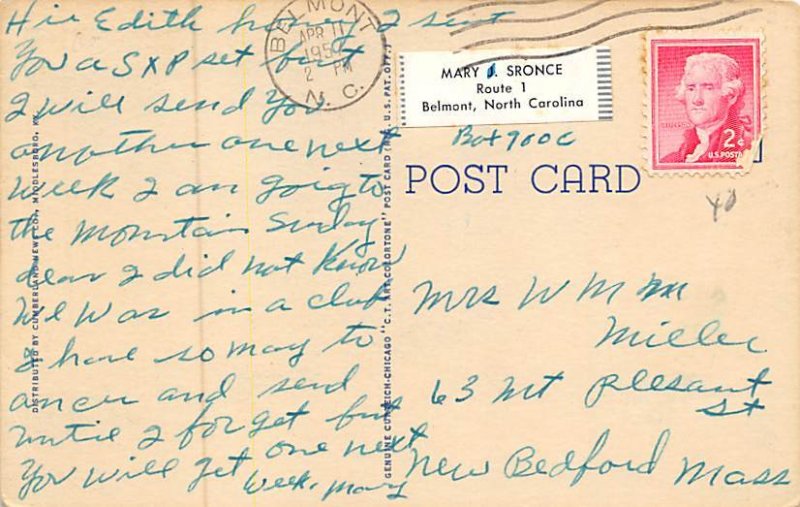 Hii Edith honey I sent
You a SXP set but
I will send You
another one next
Week I am goig to
the Mountain Sunday
dear I did not Know
We Was in a club
I have so may to
ancer and send
until I forget but
You will get one next
Week. Mary
BELMONT
APR 11
2 PM
N. C.
MARY J. SRONCE
Route 1
Belmont, North Carolina
Box 900C
2¢
U.S. POSTAGE
POST CARD
40
Mrs W M M
Miller
63 Mt Pleasant
St
New Bedford Mass
DISTRIBUTED BY CUMBERLAND NEWS CO., MIDDLESBORO, KY.
GENUINE CURTEICH-CHICAGO "C.T. ART-COLORTONE" POST CARD (REG. U.S. PAT. OFF.)